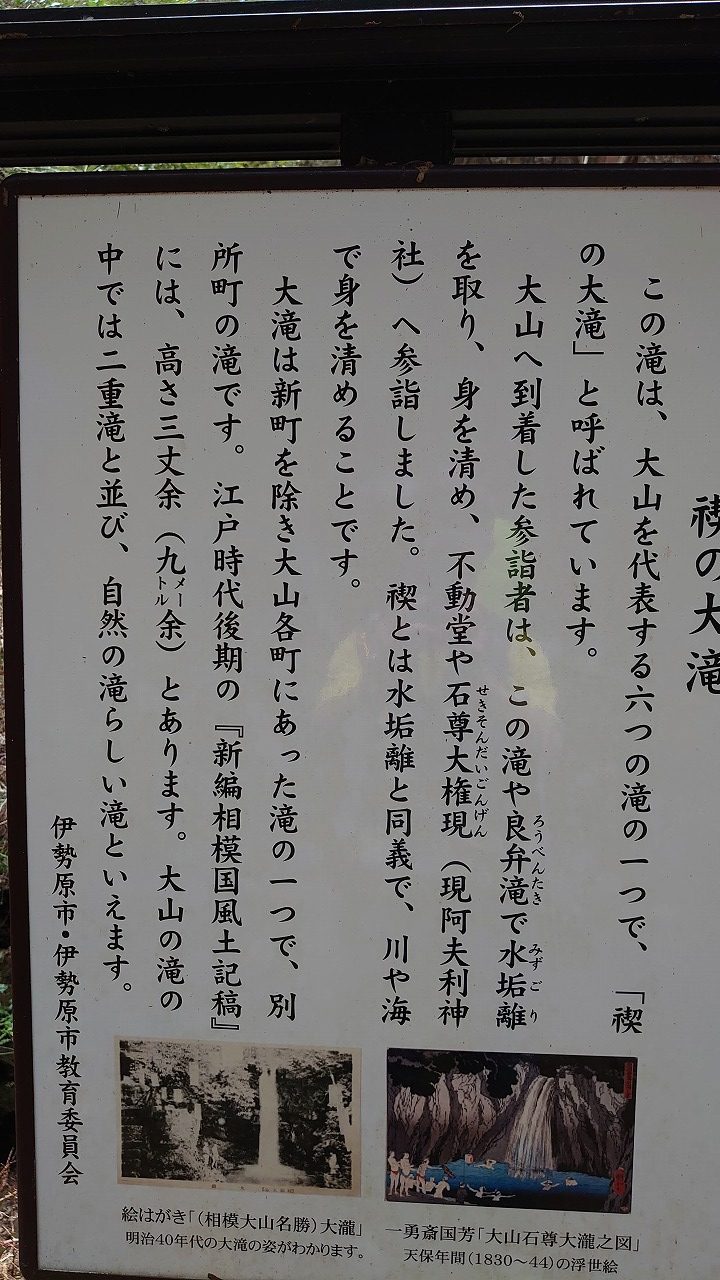 禊の大滝
この滝は、大山を代表する六つの滝の一つで、「禊
の大滝」と呼ばれています。
大山へ到着した参詣者は、この滝や良弁滝で水垢離
ろうべんたき
みずごり
を取り、身を清め、不動堂や石尊大権現（現阿夫利神
せきそんだいごんげん
社）へ参詣しました。禊とは水垢離と同義で、川や海
で身を清めることです。
大滝は新町を除き大山各町にあった滝の一つで、別
所町の滝です。江戸時代後期の『新編相模国風土記稿』
には、高さ三丈余（九メートル余）とあります。大山の滝の
中では二重滝と並び、自然の滝らしい滝といえます。
伊勢原市・伊勢原市教育委員会
一勇斎国芳「大山石尊大瀧之図」
天保年間(1830～44)の浮世絵
絵はがき「(相模大山名勝)大瀧」
明治40年代の大滝の姿がわかります。